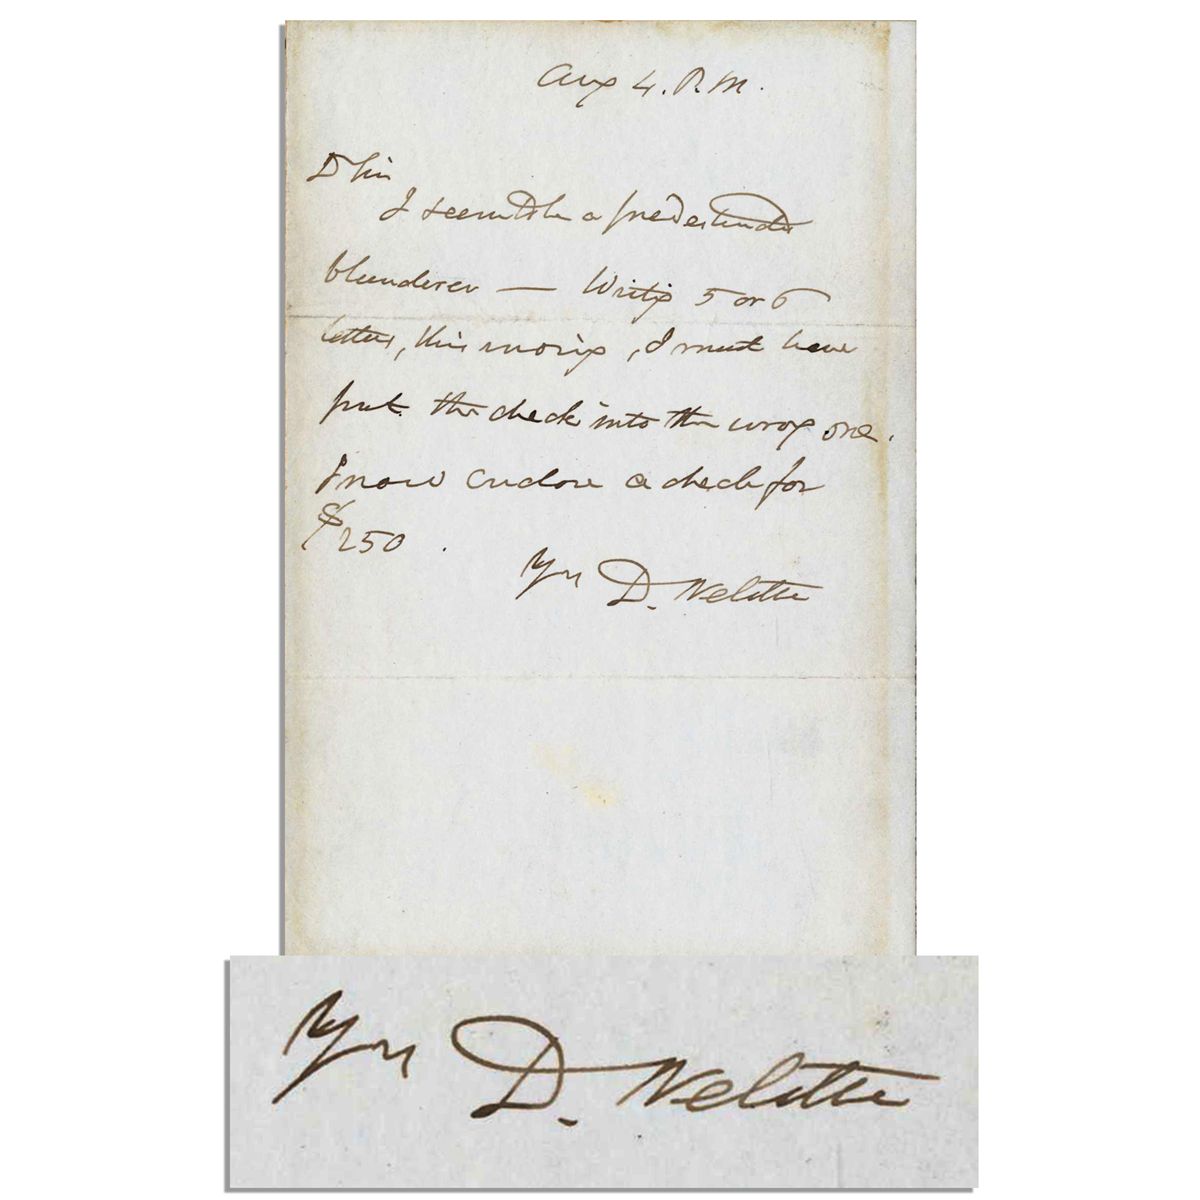 Aug 4. P.M.
D Sir
I seem to be a predestinate
blunderer — Writing 5 or 6
letters, this morning, I must have
put the check into the wrong one.
I now enclose a check for
$250.
Yrs D. Webster
Yrs D. Webster